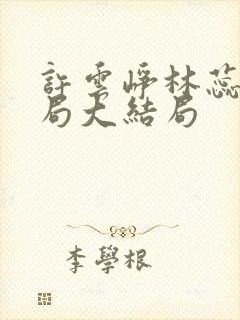 許雲崢林蕊
局大結局
李學根